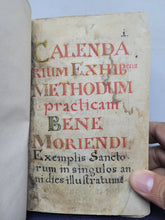 i.
CALENDA
RIUM EXHIBens
METHODUM
practicam
BENE
MORIENDI,
Exemplis Sancto
rum in singulos an
ni dies illustratum